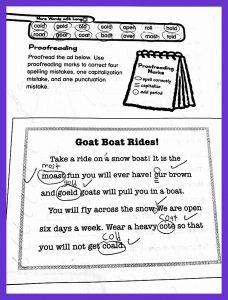 More Words with Long o
cold gold old sold open roll hold
road goat coat boat over most told
Proofreading
Proofread the ad below. Use
proofreading marks to correct four
spelling mistakes, one capitalization
mistake, and one punctuation
mistake.
Proofreading
Marks
spell correctly
capitalize
add period
Goat Boat Rides!
Take a ride on a snow boat! It is the
most
moast fun you will ever have! our brown
and goeld goats will pull you in a boat.
You will fly across the snow We are open
six days a week. Wear a heavy cote so that
cold
you will not get coald.